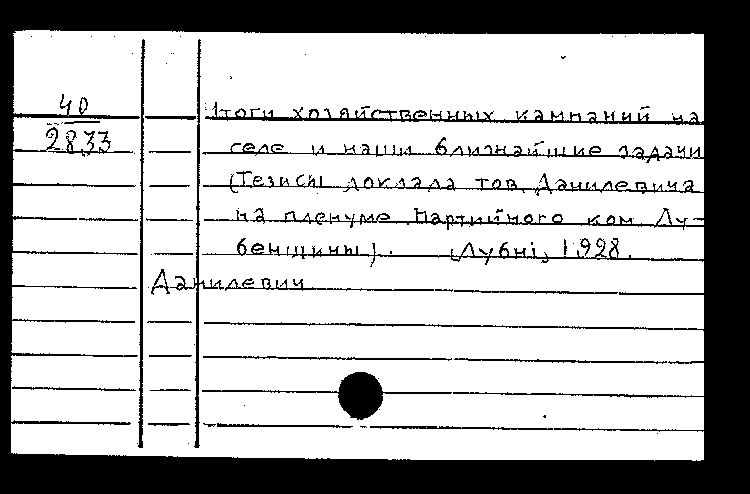 40
2833
Итоги хозяйственных кампаний на
селе и наши ближайшие задачи
(Тезисы доклада тов. Данилевича
на пленуме Партийного ком. Лу-
бенщины). Лубні, 1928.
Данилевич